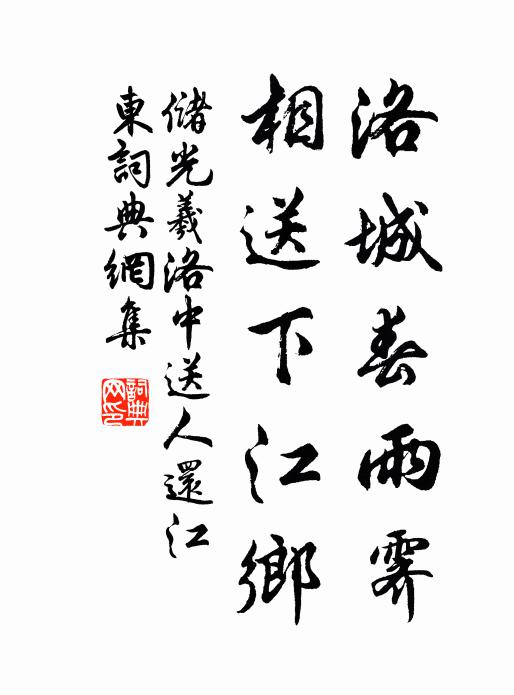 洛城春雨霽
相送下江鄉
儲光羲洛中送人還江
東詞典網集
詞典
网印